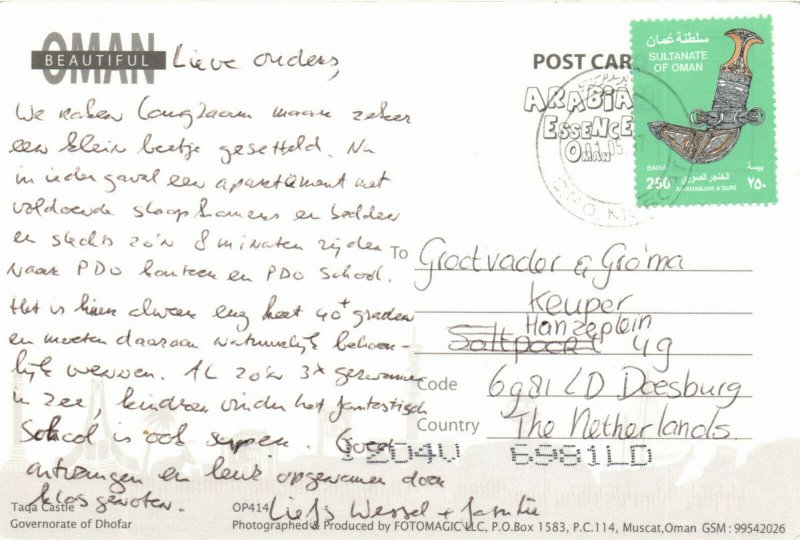 OMAN
BEAUTIFUL
Lieve ouders,
We raken langzaam maar zeker
een klein beetje gesetteld. Nu
in ieder geval een apartement met
voldoende slaapkamers en bedden
en slechts zo'n 8 minuten rijden
naar PDO kantoor en PDO School.
Het is hier alweer erg heet 40+ graden
en moeten daaraan natuurlijk behoor-
lijk wennen. Al zo'n 3x gezwommen
in zee, kinderen vinden het fantastisch
School is ook super. Goed
ontvangen en leuk opgevangen door
klasgenoten.
Liefs Wessel + familie
POST CARD
ARABIAN
ESSENCE
OMAN
سلطنة عمان
SULTANATE
OF OMAN
BAISA
بيسة
250
الخنجر الصوري
٢٥٠
ALKHANJAR A'SURI
To
Grootvader & Gro'ma
Keuper
Hanzeplein
Saltpoort 49
Code
6981 LD Doesburg
Country
The Netherlands
6981LD
Taqa Castle
Governorate of Dhofar
OP414
Photographed & Produced by FOTOMAGIC LLC, P.O.Box 1583, P.C.114, Muscat,Oman GSM : 99542026